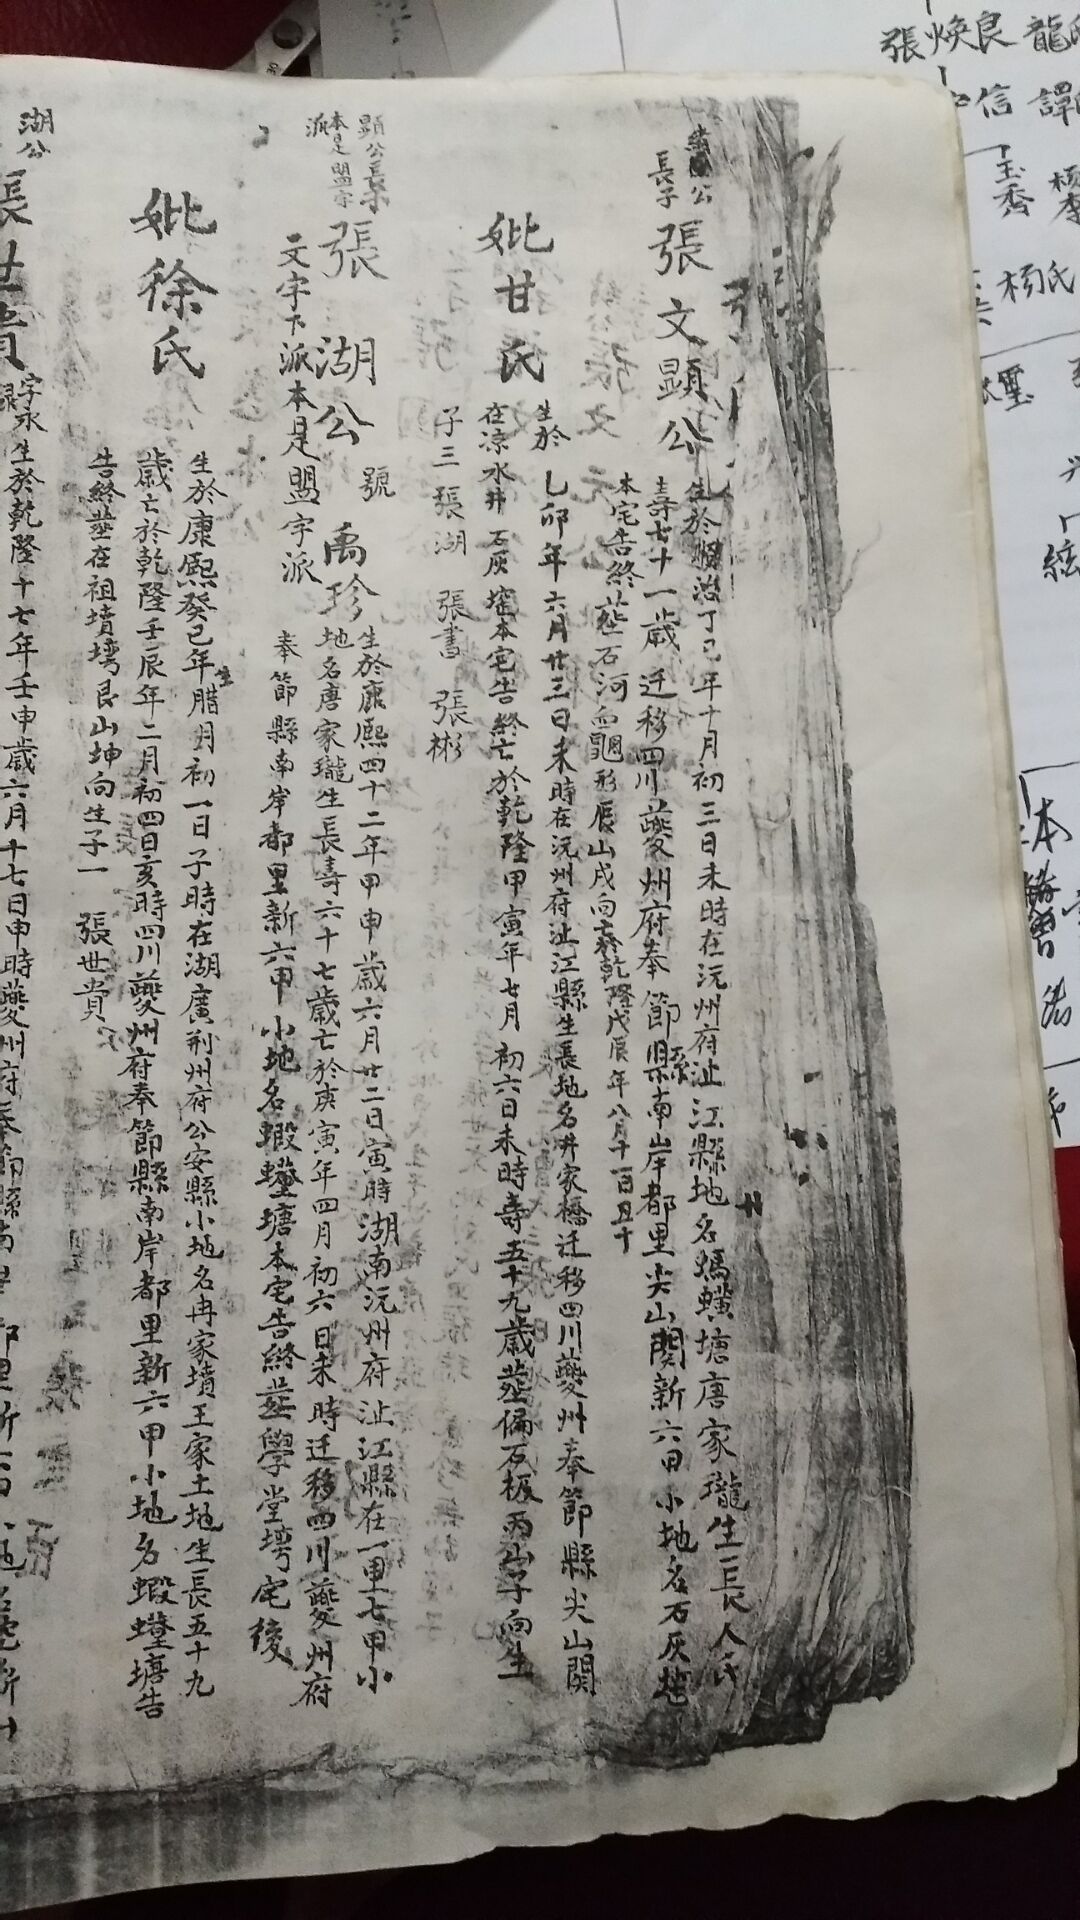 公
長子
張文顯公
生於順治丁巳年十月初三日未時在沅州府沚江縣地名螞蟥塘唐家瓏生長人氏
壽七十一歲迁移四川夔州府奉節縣南岸都里尖山関新六甲小地名石灰
本宅告終葬石河 形辰山戌向 乾隆戊辰年八月十
妣甘氏
生於乙卯年六月廿三日未時在沅州府沚江縣生長地名井家橋迁移四川夔州奉節縣尖山関
在凉水井石灰窑本宅告終亡於乾隆甲寅年七月初六日未時壽五十九歲葬偏石板丙山子向生
子三 張湖 張書 張彬
顯公長子
本是盟字
派
張湖公
號禹珍
文字下派本是盟字派
生於康熙四十二年甲申歲六月廿二日寅時湖南沅州府沚江縣在一甲七甲小
地名唐家瓏生長壽六十七歲亡於庚寅年四月初六日未時迁移四川夔州府
奉節縣南岸都里新六甲小地名蝦蟆塘本宅告終葬學堂塆宅後
妣徐氏
生於康熙癸巳年腊月初一日子時在湖廣荆州府公安縣小地名冉家墳王家土地生長五十九
歲亡於乾隆壬辰年二月初四日亥時四川夔州府奉節縣南岸都里新六甲小地名蝦蟆塘告
告終葬在祖墳塆艮山坤向生子一 張世貴
湖公
張世貴
字永
生於乾隆十七年壬申歲六月十七日申時夔州府奉節縣南
張煥良 龍
信 譚
玉秀
楊氏
璽
本